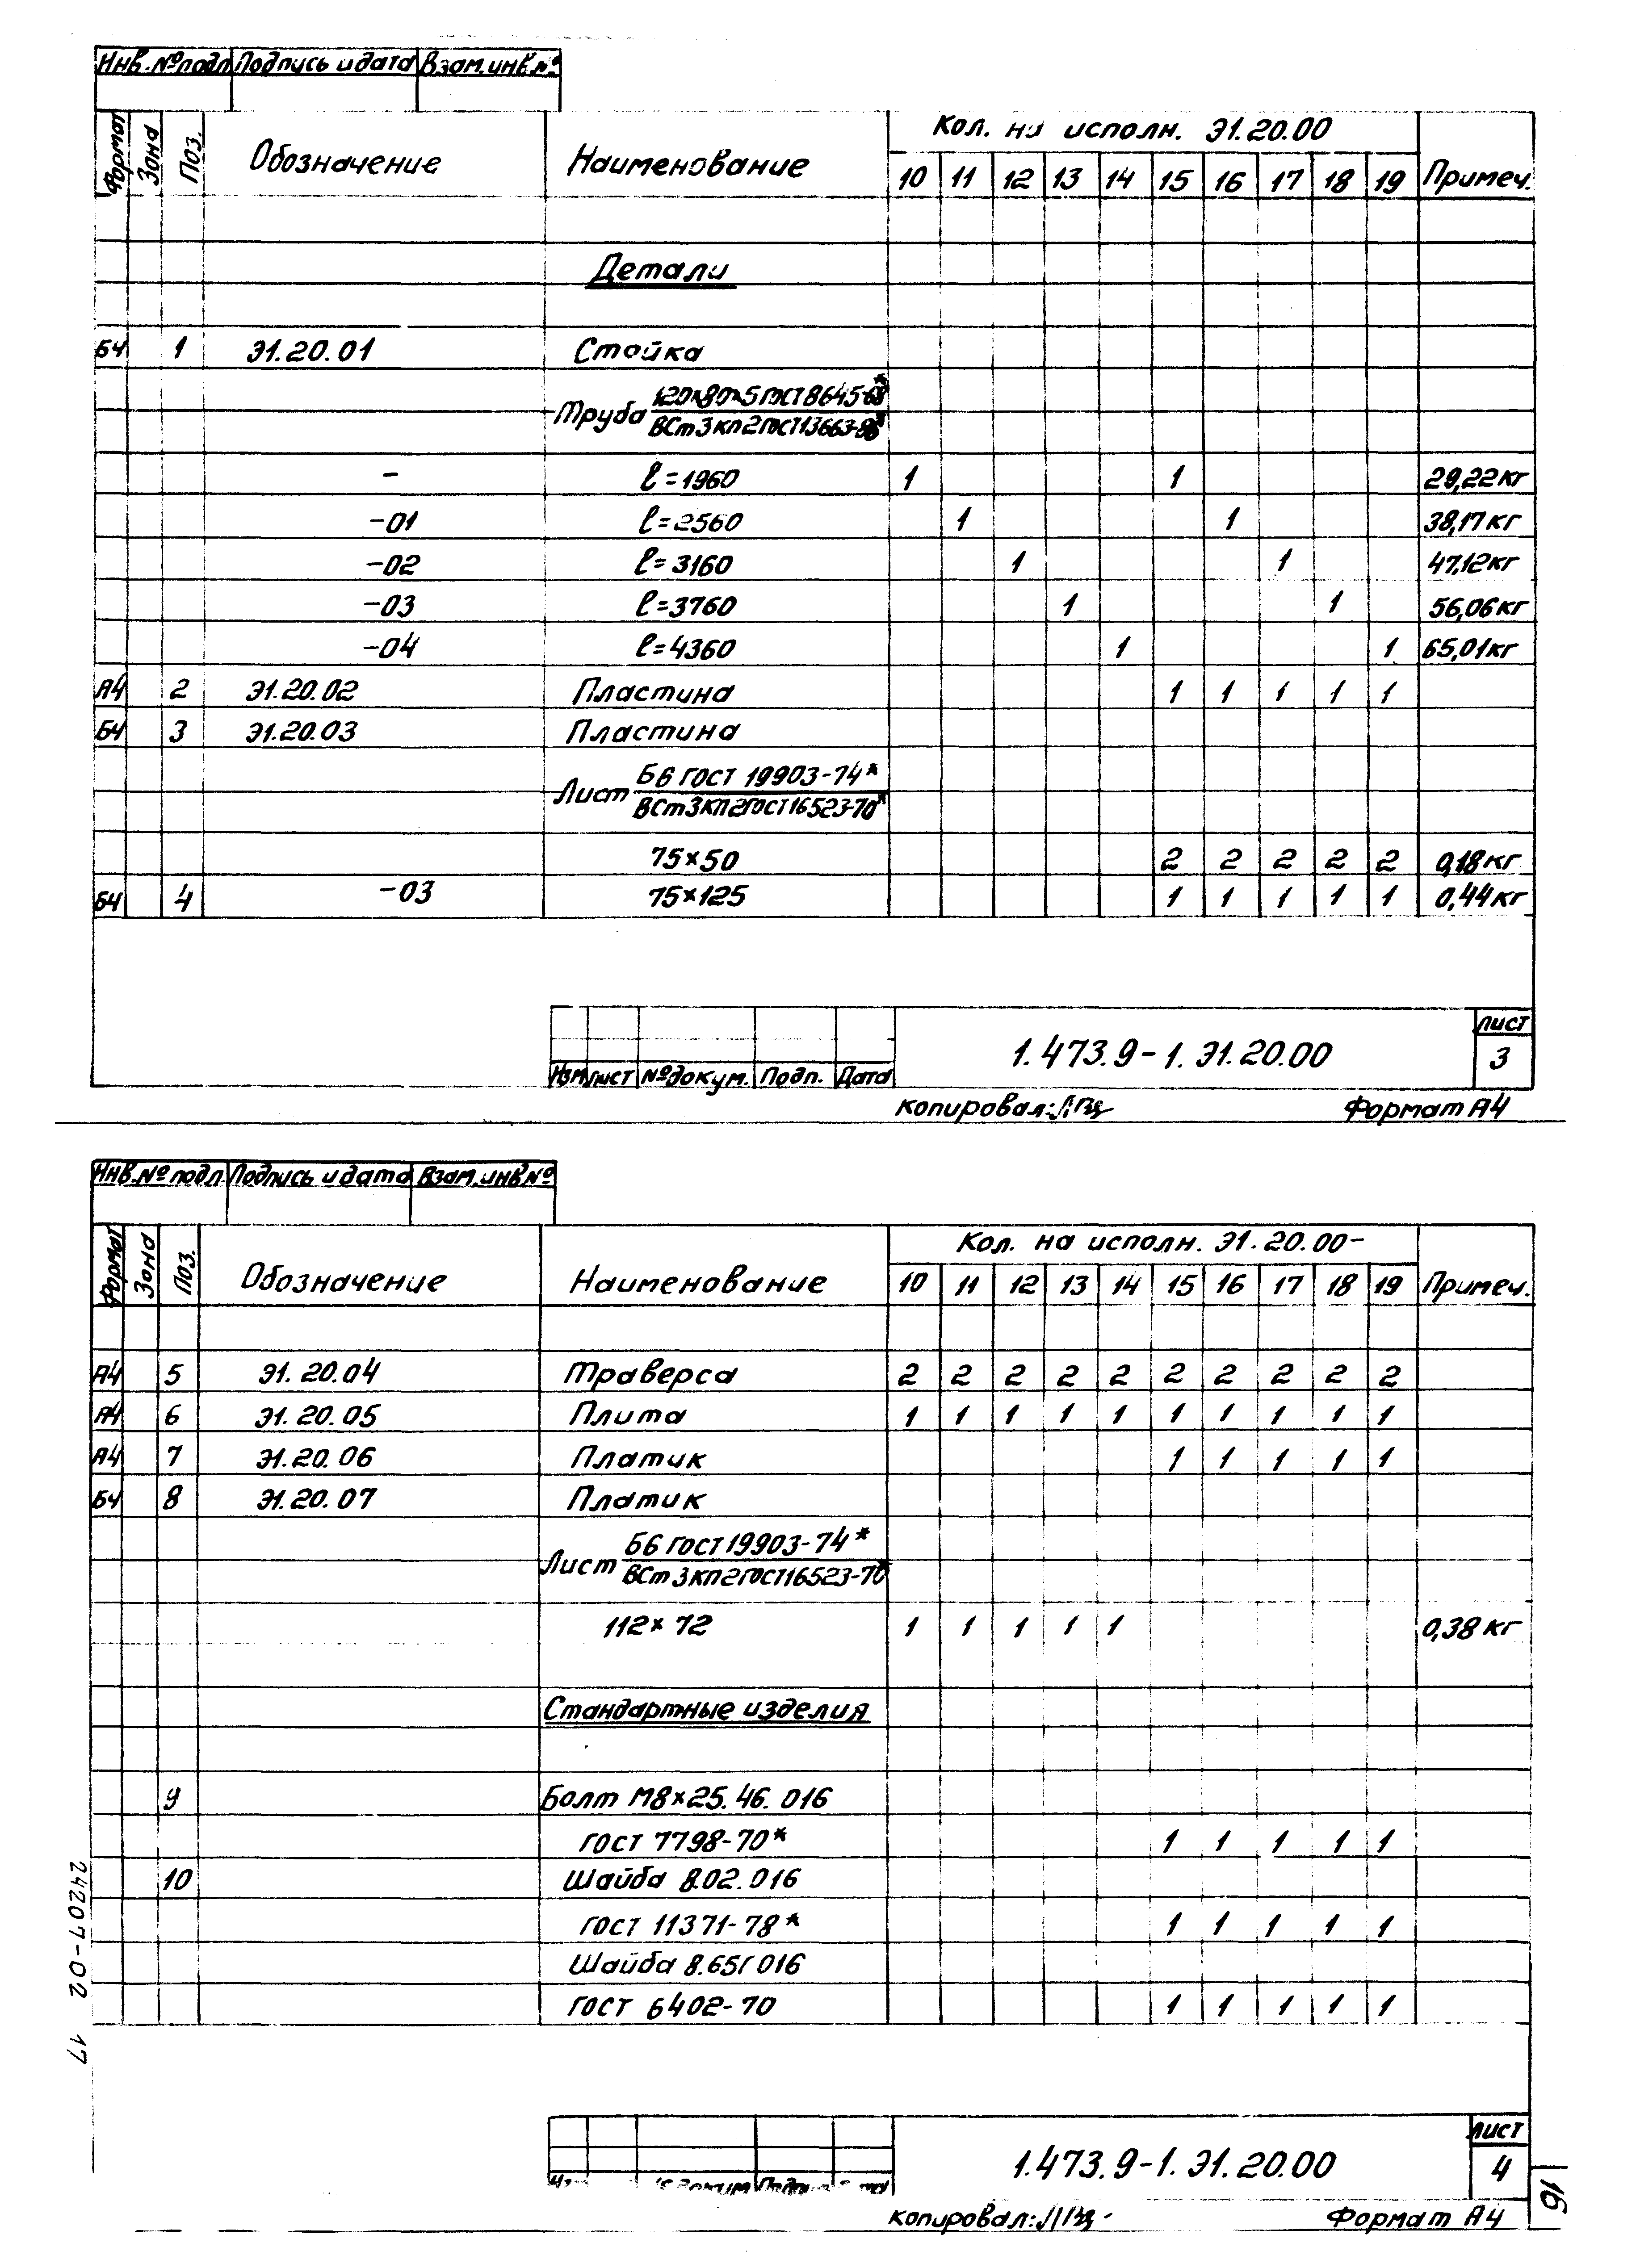 Инв.№подл Подпись и дата Взам.инв.№
Формат Зона Поз. Обозначение Наименование Кол. на исполн. Э1.20.00 Примеч.
10 11 12 13 14 15 16 17 18 19
Детали
БЧ 1 Э1.20.01 Стойка
Труба 120×80×5 ГОСТ 8645-68*
ВСт3кп2 ГОСТ 13663-86*
- ℓ=1960 1 1 29,22кг
-01 ℓ=2560 1 1 38,17кг
-02 ℓ=3160 1 1 47,12кг
-03 ℓ=3760 1 1 56,06кг
-04 ℓ=4360 1 1 65,01кг
А4 2 Э1.20.02 Пластина 1 1 1 1 1
БЧ 3 Э1.20.03 Пластина
Лист Б6 ГОСТ 19903-74*
ВСт3кп2 ГОСТ 16523-70*
75×50 2 2 2 2 2 0,18кг
БЧ 4 -03 75×125 1 1 1 1 1 0,44кг
Изм Лист №докум. Подп. Дата
1.473.9-1.Э1.20.00
Лист
3
Копировал: Формат А4
Инв.№ подл. Подпись и дата Взам.инв №
Формат Зона Поз. Обозначение Наименование Кол. на исполн. Э1.20.00- Примеч.
10 11 12 13 14 15 16 17 18 19
А4 5 Э1.20.04 Траверса 2 2 2 2 2 2 2 2 2 2
А4 6 Э1.20.05 Плита 1 1 1 1 1 1 1 1 1 1
А4 7 Э1.20.06 Платик 1 1 1 1 1
БЧ 8 Э1.20.07 Платик
Лист Б6 ГОСТ 19903-74*
ВСт3кп2 ГОСТ 16523-70*
112×72 1 1 1 1 1 0,38кг
Стандартные изделия
9 Болт М8×25.46.016
ГОСТ 7798-70* 1 1 1 1 1
10 Шайба 8.02.016
ГОСТ 11371-78* 1 1 1 1 1
Шайба 8.65Г 016
ГОСТ 6402-70 1 1 1 1 1
1.473.9-1.Э1.20.00
Лист
4
Копировал: Формат А4
24207-02 17
16